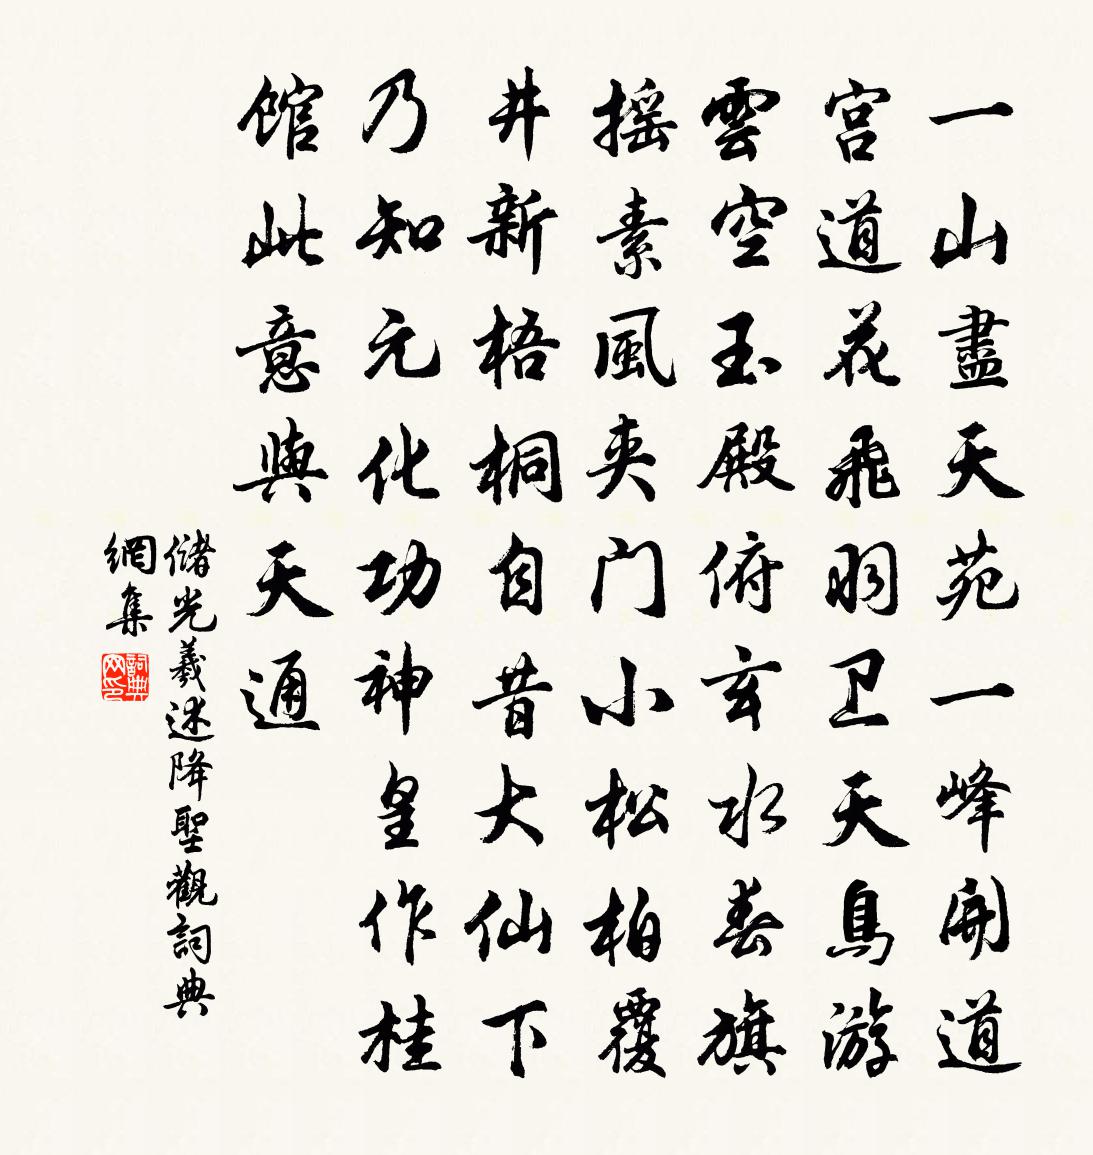 一山盡天苑一峰開道
宮道花飛羽卫天鳥游
雲空玉殿俯玄水春旗
摇素風夾门小松柏覆
井新梧桐自昔大仙下
乃知元化功神皇作桂
馆此意與天通
儲光羲述降聖觀詞典
網集
詞典
网印